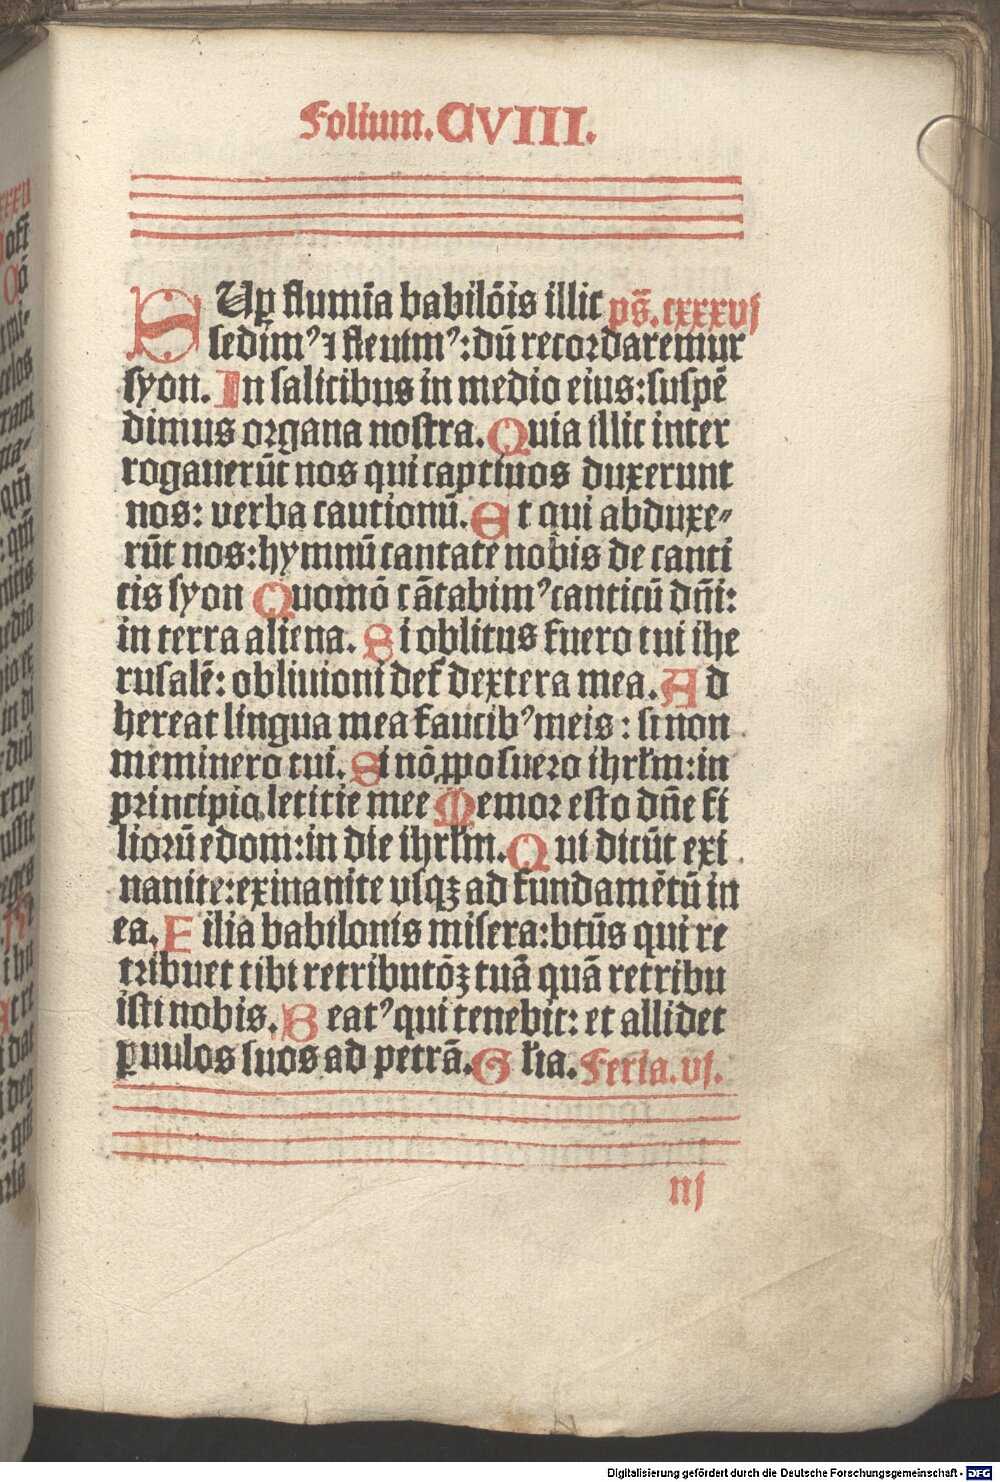 Folium. CVIII.
SUp flumīa babilōis illic ps̄. cxxxvj
sedim⁹ ⁊ fleuim⁹: dū recordaremur
syon. In salicibus in medio eius: suspē
dimus organa nostra. Quia illic inter
rogauerūt nos qui captiuos duxerunt
nos: verba cautionū. Et qui abduxe⸗
rūt nos: hymnū cantate nobis de canti
cis syon Quomō cātabim⁹ canticū dn̄i:
in terra aliena. Si oblitus fuero tui ihe
rusalē: obliuioni det̄ dextera mea. Ad
hereat lingua mea faucib⁹ meis: si non
meminero tui. Si nō ꝓposuero ihrl̄m: in
principio leticie mee Memor esto dn̄e fi
liorū edom: in die ihrl̄m. Qui dicūt exi
nanite: exinanite vsqꝫ ad fundamētū in
ea. Filia babilonis misera: btūs qui re
tribuet tibi retributōꝫ tuā quā retribu
isti nobis. Beat⁹ qui tenebit: et allidet
ꝑuulos suos ad petrā. Gl̄ia. Feria. vj.
nj
Digitalisierung gefördert durch die Deutsche Forschungsgemeinschaft - DFG